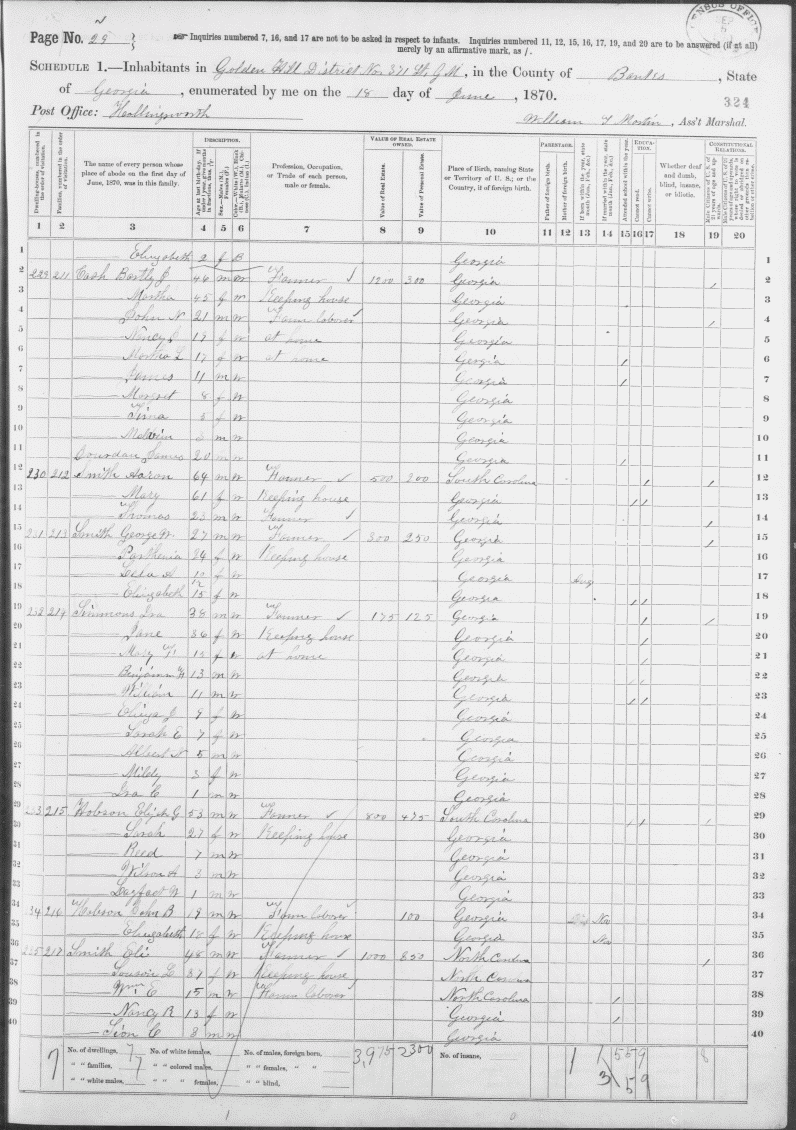 Page No. 29
Inquiries numbered 7, 16, and 17 are not to be asked in respect to infants. Inquiries numbered 11, 12, 15, 16, 17, 19, and 20 are to be answered (if at all)
merely by an affirmative mark, as /.
SCHEDULE 1.—Inhabitants in Golden Hill District No. 371 St, G M, in the County of Banks, State
of Georgia, enumerated by me on the 18 day of June, 1870.
324
Post Office: Hollingsworth
William Martin, Ass't Marshal.
DESCRIPTION.
VALUE OF REAL ESTATE OWNED.
PARENTAGE.
EDUCATION.
CONSTITUTIONAL RELATIONS.
Dwelling-houses, numbered in the order of visitation.
Families, numbered in the order of visitation.
The name of every person whose place of abode on the first day of June, 1870, was in this family.
Profession, Occupation, or Trade of each person, male or female.
Value of Real Estate.
Value of Personal Estate.
Place of Birth, naming State or Territory of U. S.; or the Country, if of foreign birth.
Father of foreign birth.
Mother of foreign birth.
Attended school within the year.
Cannot read.
Cannot write.
Whether deaf and dumb, blind, insane, or idiotic.
1 2 3 4 5 6 7 8 9 10 11 12 13 14 15 16 17 18 19 20
1 — Elizabeth 2 f B Georgia 1
2 229 211 Cash Bartly J 46 m W Farmer 1200 300 Georgia / 2
3 — Martha 45 f W Keeping house Georgia 3
4 — John N 21 m W Farm laborer Georgia / 4
5 — Nancy J 19 f W at home Georgia 5
6 — Martha L 17 f W at home Georgia / 6
7 — James 11 m W Georgia / 7
8 — Margret 8 f W Georgia 8
9 — f W Georgia 9
10 — m W Georgia 10
11 Jourdan James 20 m W Georgia / 11
12 230 212 Smith Aaron 64 m W Farmer 500 200 South Carolina / 12
13 — Mary 61 f W Keeping house Georgia / / 13
14 — Thomas 23 m W Farmer Georgia / 14
15 231 213 Smith George W. 27 m W Farmer 300 250 Georgia / 15
16 — Parthenia 24 f W Keeping house Georgia 16
17 — 10/12 f W Georgia Aug 17
18 — Elizabeth 15 f W Georgia / / 18
19 232 214 Simmons Ira 38 m W Farmer 175 125 Georgia / / 19
20 — Jane 36 f W Keeping house Georgia / 20
21 — Mary 15 f W at home Georgia / 21
22 — Benjamin H 13 m W Georgia / / 22
23 — William 11 m W Georgia / / 23
24 — J 9 f W Georgia 24
25 — Sarah E 7 f W Georgia 25
26 — Albert N 5 m W Georgia 26
27 — Mildy 3 f W Georgia 27
28 — Ira C 1 m W Georgia 28
29 233 215 Hobson Elijah G 53 m W Farmer 800 475 South Carolina / / / 29
30 — Sarah 27 f W Keeping house Georgia 30
31 — Reed 7 m W Georgia 31
32 — Wilson A 3 m W Georgia 32
33 — 1 m W Georgia 33
34 234 216 Hobson John B 19 m W Farm laborer 100 Georgia Nov 34
35 — Elizabeth 18 f W Keeping house Georgia Nov 35
36 235 217 Smith Eli 48 m W Farmer 1000 850 North Carolina / 36
37 — 37 f W Keeping house North Carolina 37
38 — Wm E 15 m W Farm laborer North Carolina / 38
39 — Nancy R 13 f W Georgia / 39
40 — C 8 m W Georgia 40
No. of dwellings, 7 No. of white females, No. of males, foreign born, 3,975 2300 No. of insane,
" " families, 7 " " colored males, " " females, " "
" " white males, " " " females, " " blind,